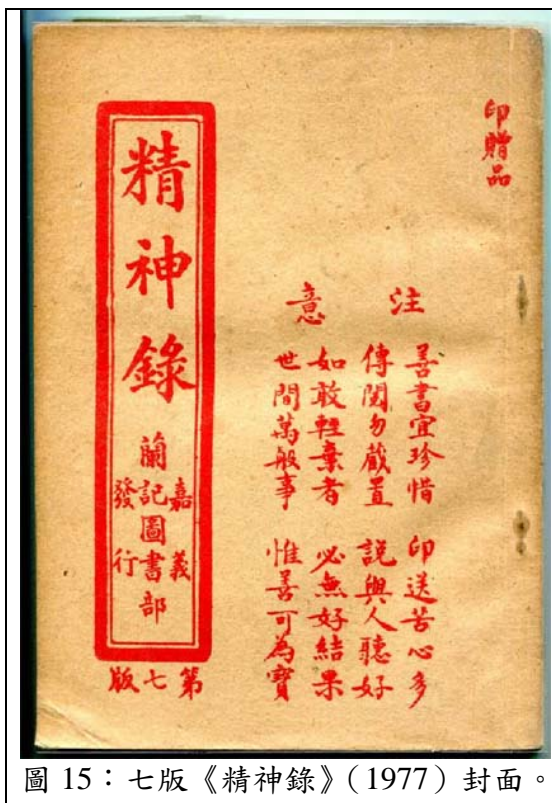 印贈品
注意
善書宜珍惜 印送苦心多
傳閱勿藏置 說與人聽好
如敢輕棄者 必無好結果
世間萬般事 惟善可為寶
精神錄
嘉義
蘭記圖書部
發行
第七版
圖 15:七版《精神錄》(1977)封面。